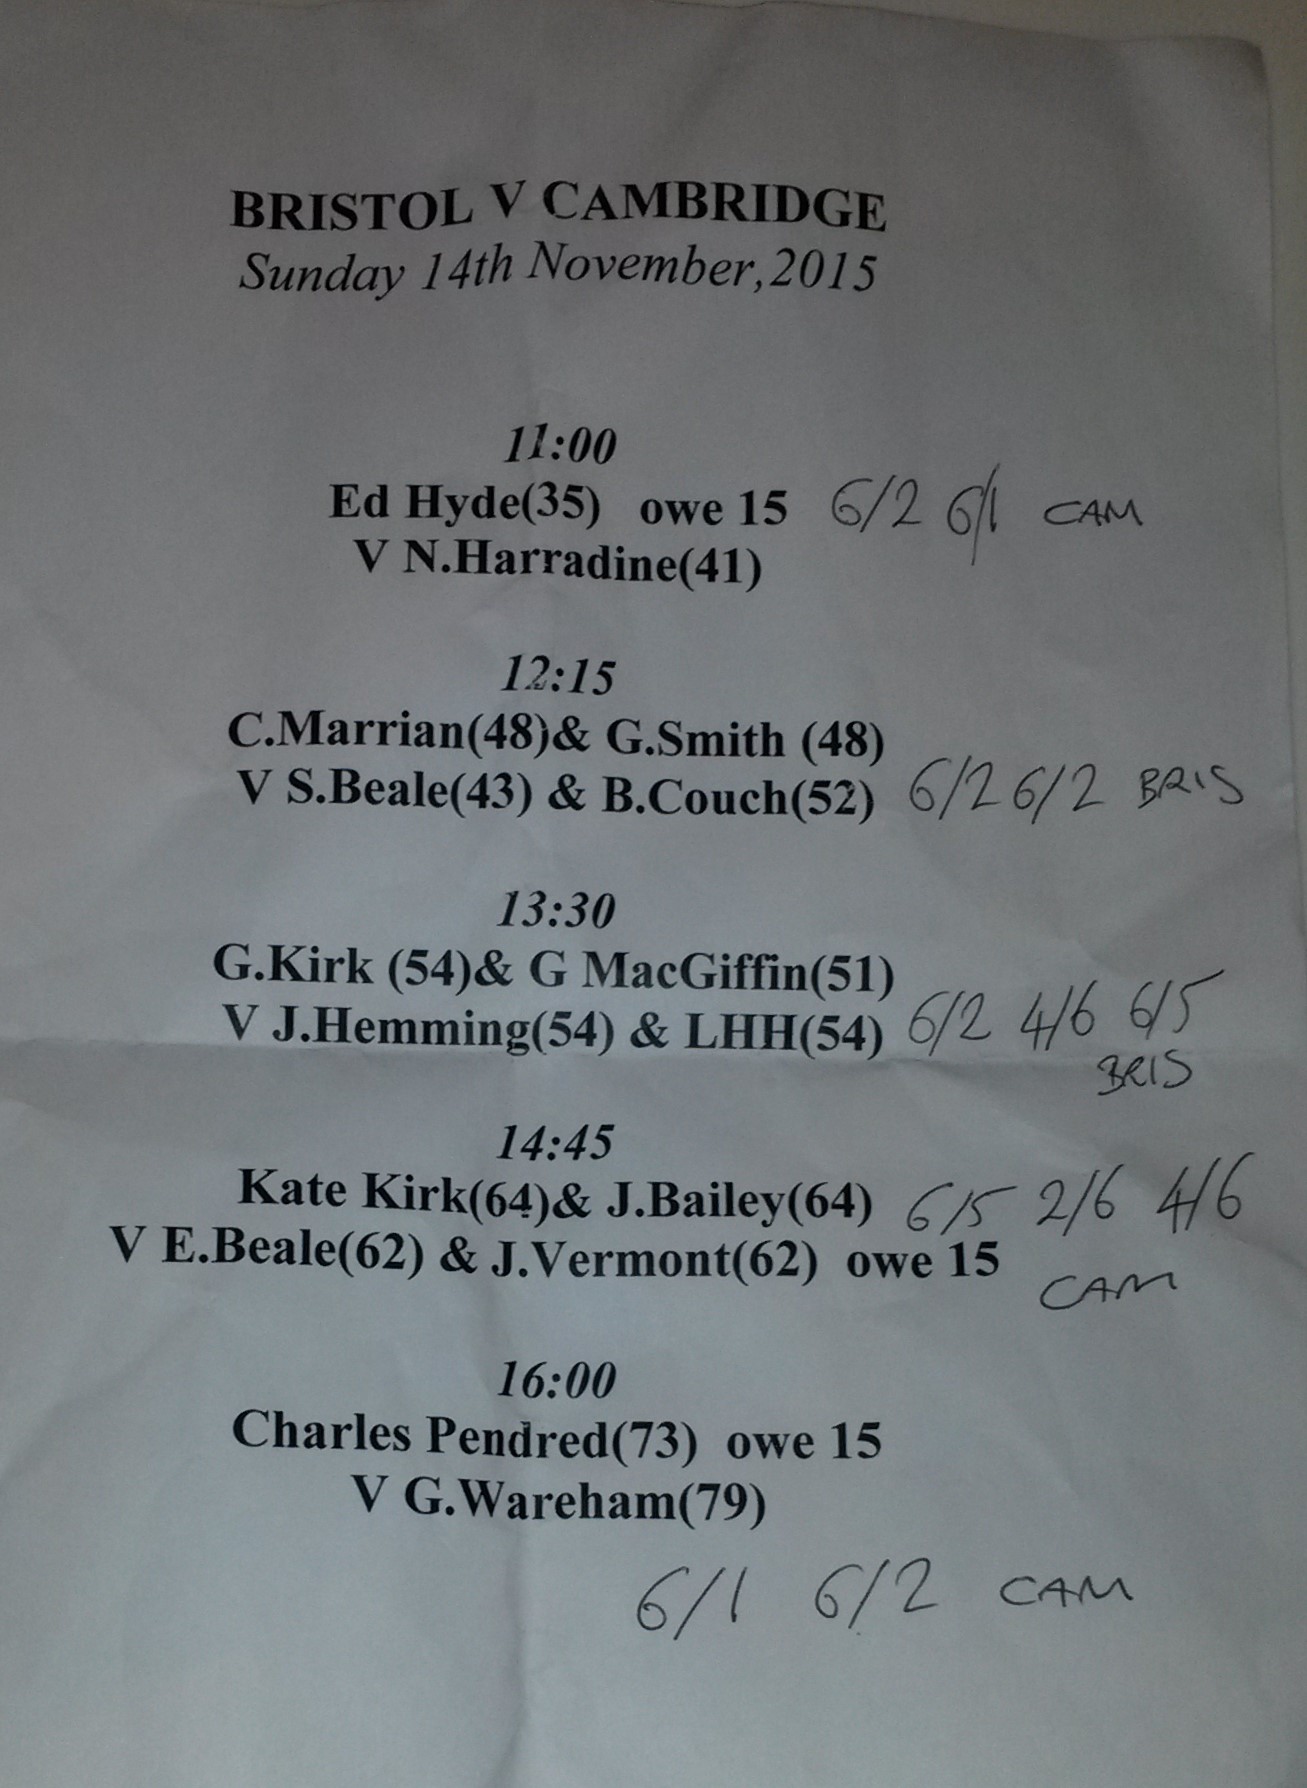 BRISTOL V CAMBRIDGE
Sunday 14th November,2015
11:00
Ed Hyde(35) owe 15 6/2 6/1 CAM
V N.Harradine(41)
12:15
C.Marrian(48)& G.Smith (48)
V S.Beale(43) & B.Couch(52) 6/2 6/2 BRIS
13:30
G.Kirk (54)& G MacGiffin(51)
V J.Hemming(54) & LHH(54) 6/2 4/6 6/5
BRIS
14:45
Kate Kirk(64)& J.Bailey(64) 6/5 2/6 4/6
V E.Beale(62) & J.Vermont(62) owe 15
CAM
16:00
Charles Pendred(73) owe 15
V G.Wareham(79)
6/1 6/2 CAM